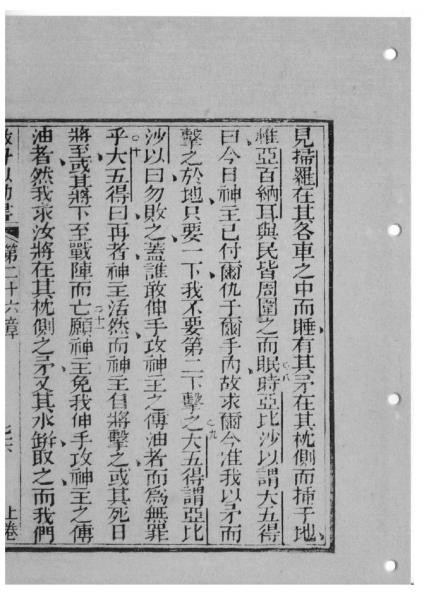 見掃羅在其各車之中而睡有其矛在其枕側而揷于地
維亞百納耳與民皆周圍之而眠時亞比沙以謂大五得
○八
曰今日神主已付爾仇于爾手內故求爾今准我以矛而
擊之於地只要一下我不要第二下擊之大五得謂亞比
○九
沙以曰勿敗之蓋誰敢伸手攻神主之傅油者而爲無罪
○十
乎大五得曰再者神主活然而神主自將擊之或其死日
將至或其將下至戰陣而亡願神主免我伸手攻神主之傅
○十一
油者然我求汝將在其枕側之矛又其水鉼取之而我們
第二十六章
上卷